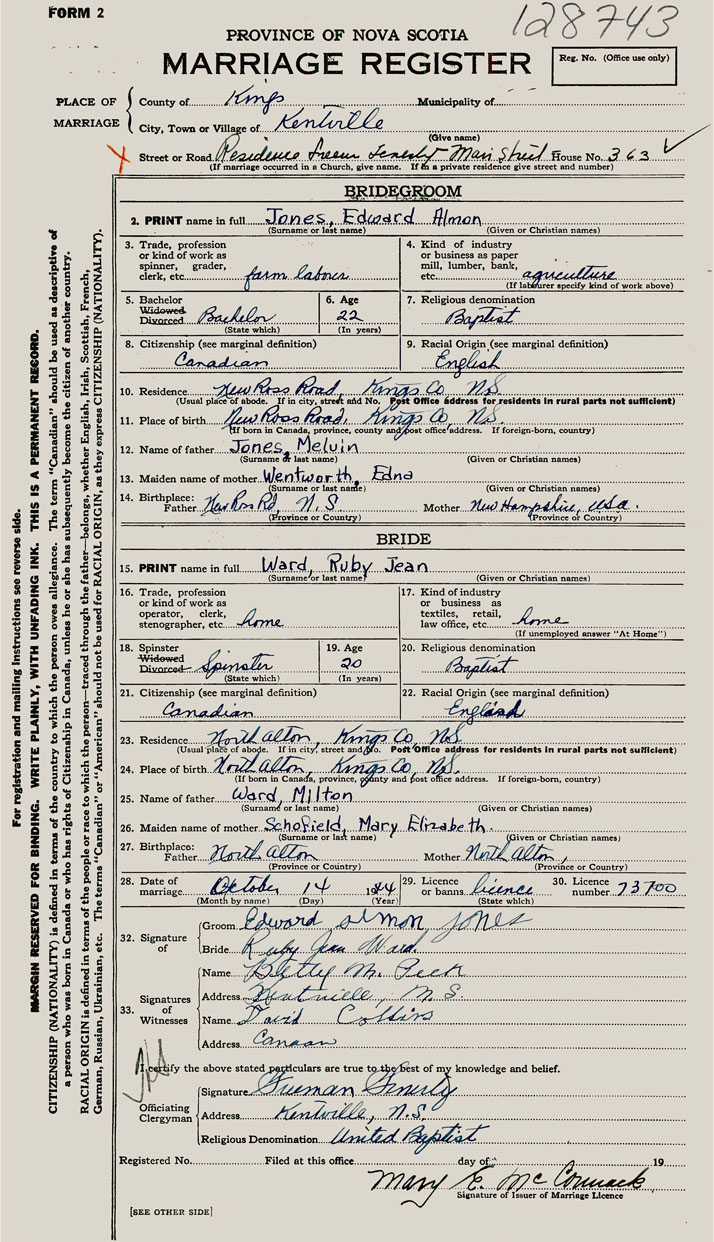 FORM 2
128743
PROVINCE OF NOVA SCOTIA
MARRIAGE REGISTER
Reg. No. (Office use only)
PLACE OF MARRIAGE
County of Kings Municipality of
City, Town or Village of Kentville
(Give name)
Street or Road Residence Freeman Fenerty Main Street House No. 363
(If marriage occurred in a Church, give name. If in a private residence give street and number)
BRIDEGROOM
2. PRINT name in full Jones, Edward Almon
(Surname or last name) (Given or Christian names)
3. Trade, profession or kind of work as spinner, grader, clerk, etc. farm laborer
4. Kind of industry or business as paper mill, lumber, bank, etc. agriculture
(If labourer specify kind of work above)
5. Bachelor Widowed Divorced Bachelor
(State which)
6. Age 22
(In years)
7. Religious denomination
Baptist
8. Citizenship (see marginal definition)
Canadian
9. Racial Origin (see marginal definition)
English
10. Residence New Ross Road, Kings Co, N.S.
(Usual place of abode. If in city, street and No. Post Office address for residents in rural parts not sufficient)
11. Place of birth New Ross Road, Kings Co, N.S.
(If born in Canada, province, county and post office address. If foreign-born, country)
12. Name of father Jones, Melvin
(Surname or last name) (Given or Christian names)
13. Maiden name of mother Wentworth, Edna
(Surname or last name) (Given or Christian names)
14. Birthplace:
Father New Ross Rd, N.S. Mother New Hampshire, USA.
(Province or Country) (Province or Country)
BRIDE
15. PRINT name in full Ward, Ruby Jean
(Surname or last name) (Given or Christian names)
16. Trade, profession or kind of work as operator, clerk, stenographer, etc. home
17. Kind of industry or business as textiles, retail, law office, etc. home
(If unemployed answer "At Home")
18. Spinster Widowed Divorced Spinster
(State which)
19. Age 20
(In years)
20. Religious denomination
Baptist
21. Citizenship (see marginal definition)
Canadian
22. Racial Origin (see marginal definition)
23. Residence North Alton, Kings Co, N.S.
(Usual place of abode. If in city, street and No. Post Office address for residents in rural parts not sufficient)
24. Place of birth North Alton, Kings Co, N.S.
(If born in Canada, province, county and post office address. If foreign-born, country)
25. Name of father Ward, Milton
(Surname or last name) (Given or Christian names)
26. Maiden name of mother Schofield, Mary Elizabeth.
(Surname or last name) (Given or Christian names)
27. Birthplace:
Father North Alton Mother North Alton,
(Province or Country) (Province or Country)
28. Date of marriage October 14 1944
(Month by name) (Day) (Year)
29. Licence or banns licence
(State which)
30. Licence number 73700
32. Signature of
Groom Edward Almon Jones
Bride Ruby Jean Ward.
33. Signatures of Witnesses
Name Betty M. Peck
Address Kentville, N.S.
Name David Collins
Address Canaan
I certify the above stated particulars are true to the best of my knowledge and belief.
Officiating Clergyman
Signature Freeman Fenerty
Address Kentville, N.S.
Religious Denomination United Baptist
Registered No. Filed at this office day of 19
Mary E. McCormack
Signature of Issuer of Marriage Licence
[SEE OTHER SIDE]
For registration and mailing instructions see reverse side.
MARGIN RESERVED FOR BINDING. WRITE PLAINLY, WITH UNFADING INK. THIS IS A PERMANENT RECORD.
CITIZENSHIP (NATIONALITY) is defined in terms of the country to which the person owes allegiance. The term "Canadian" should be used as descriptive of
a person who was born in Canada or who has rights of Citizenship in Canada, unless he or she has subsequently become the citizen of another country.
RACIAL ORIGIN is defined in terms of the people or race to which the person—traced through the father—belongs, whether English, Irish, Scottish, French,
German, Russian, Ukrainian, etc. The terms "Canadian" or "American" should not be used for RACIAL ORIGIN, as they express CITIZENSHIP (NATIONALITY).